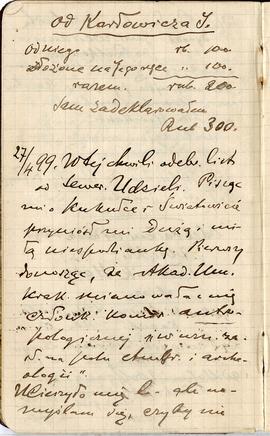 od Karłowicza J.
od niego rb. 100.
złożone na Jego ręce „ 100.
razem. rub. 200
Sam zadeklarowałem
Rub 300.
27/4 99. W tej chwili odebr. list
od Sewer. Udzieli. Pisze
mi o Kukułce, Światowicie
przyniósł mi dużą i mi-
łą niespodziankę. Pierwszy
donosząc, że Akad. Um.
Krak. mianowała mię
człowk. komis. antro-
pologicznej
na polu etnogr. i archa-
ologii".
Ucieszyło mię b. ale na-
myślam się, czyby nie